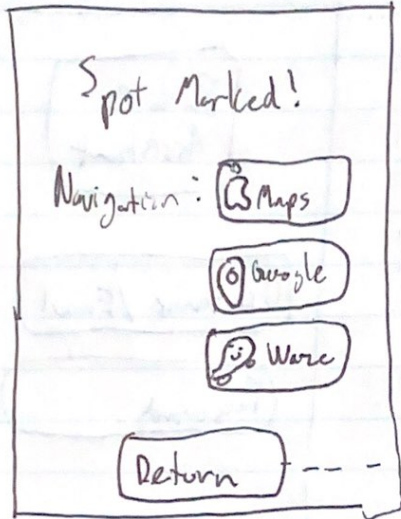 Spot Marked!
Navigation: Maps
Google
Waze
Return